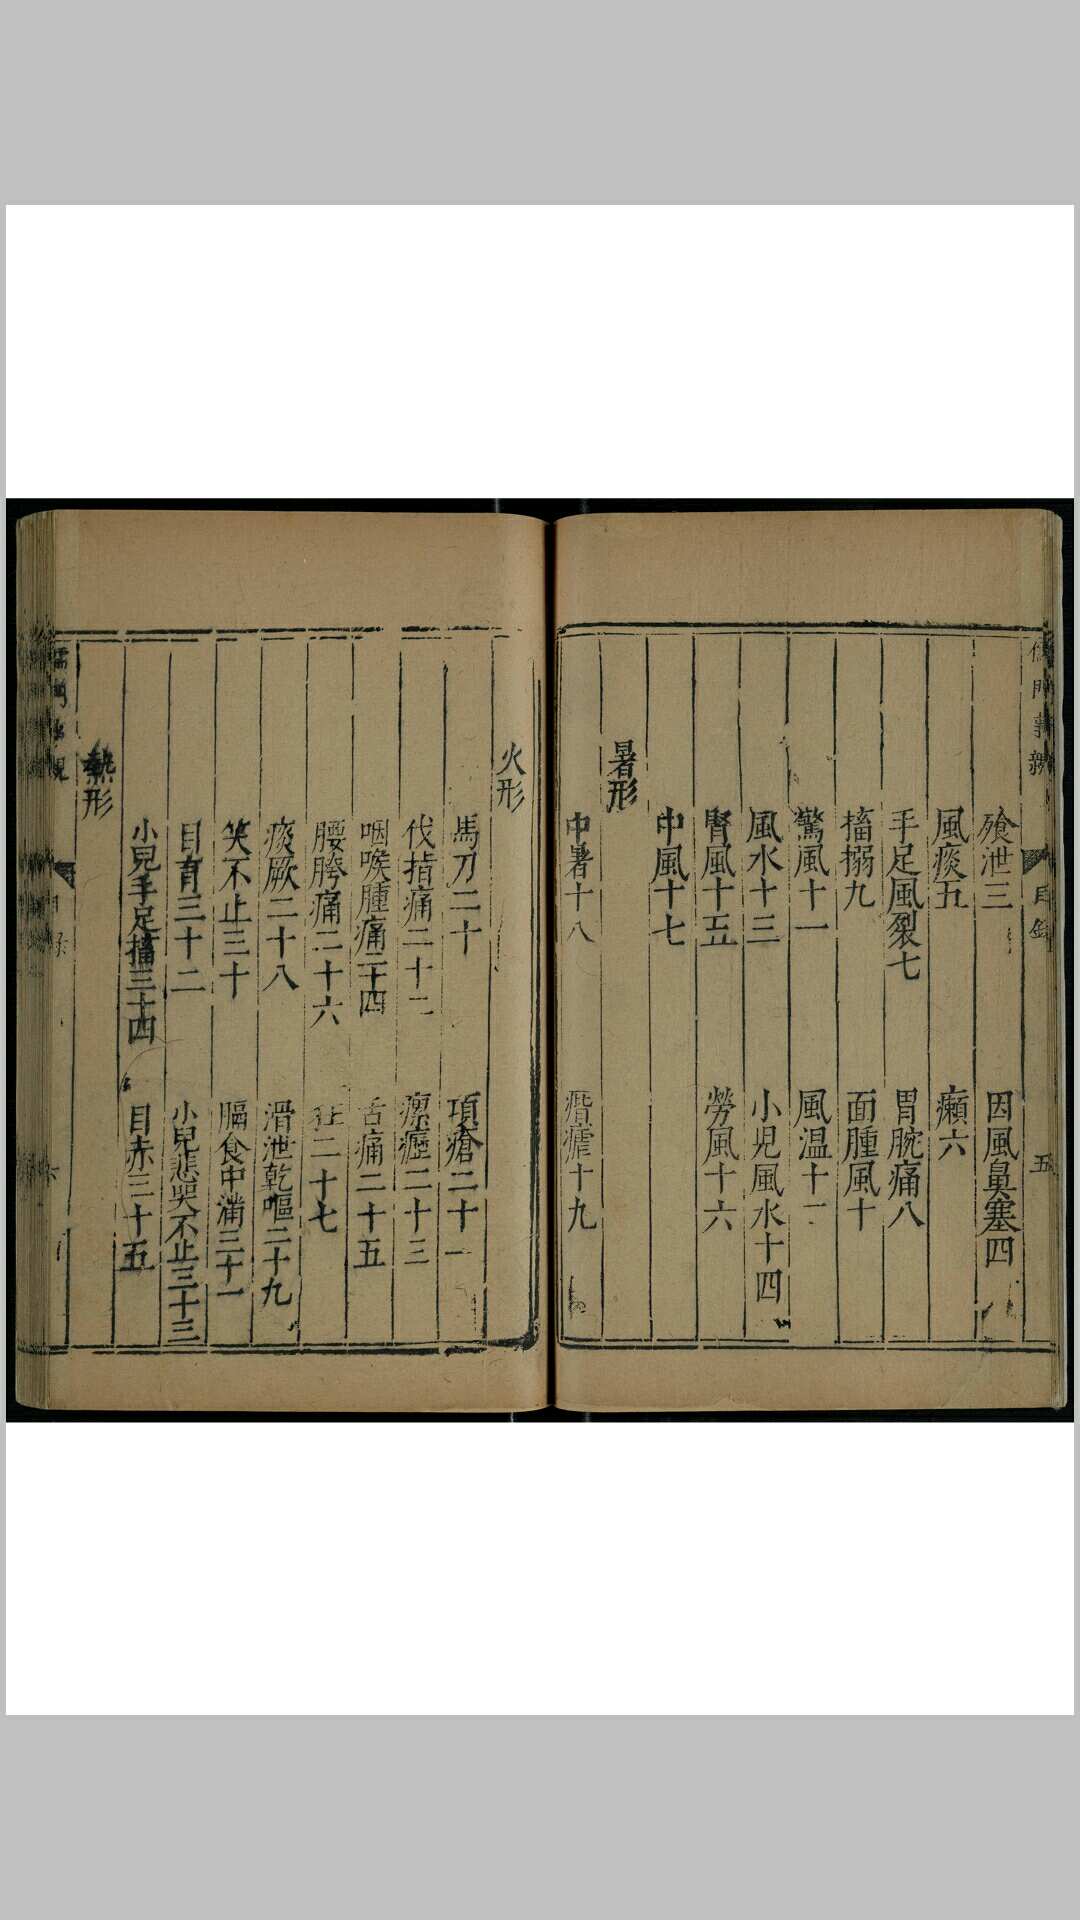 儒門事親
目錄
五
飱泄三
因風鼻塞四
風痰五
癩六
手足風裂七
胃脘痛八
搐搦九
面腫風十
驚風十一
風温十二
風水十三
小児風水十四
腎風十五
勞風十六
中風十七
暑形
中暑十八
痟瘧十九
火形
馬刀二十
項瘡二十一
伐指痛二十二
瘰癧二十三
咽喉腫痛二十四
舌痛二十五
腰胯痛二十六
狂二十七
痰厥二十八
滑泄乾嘔二十九
笑不止三十
膈食中滿三十一
目盲三十二
小兒悲哭不止三十三
小兒手足搐三十四
目赤三十五
熱形